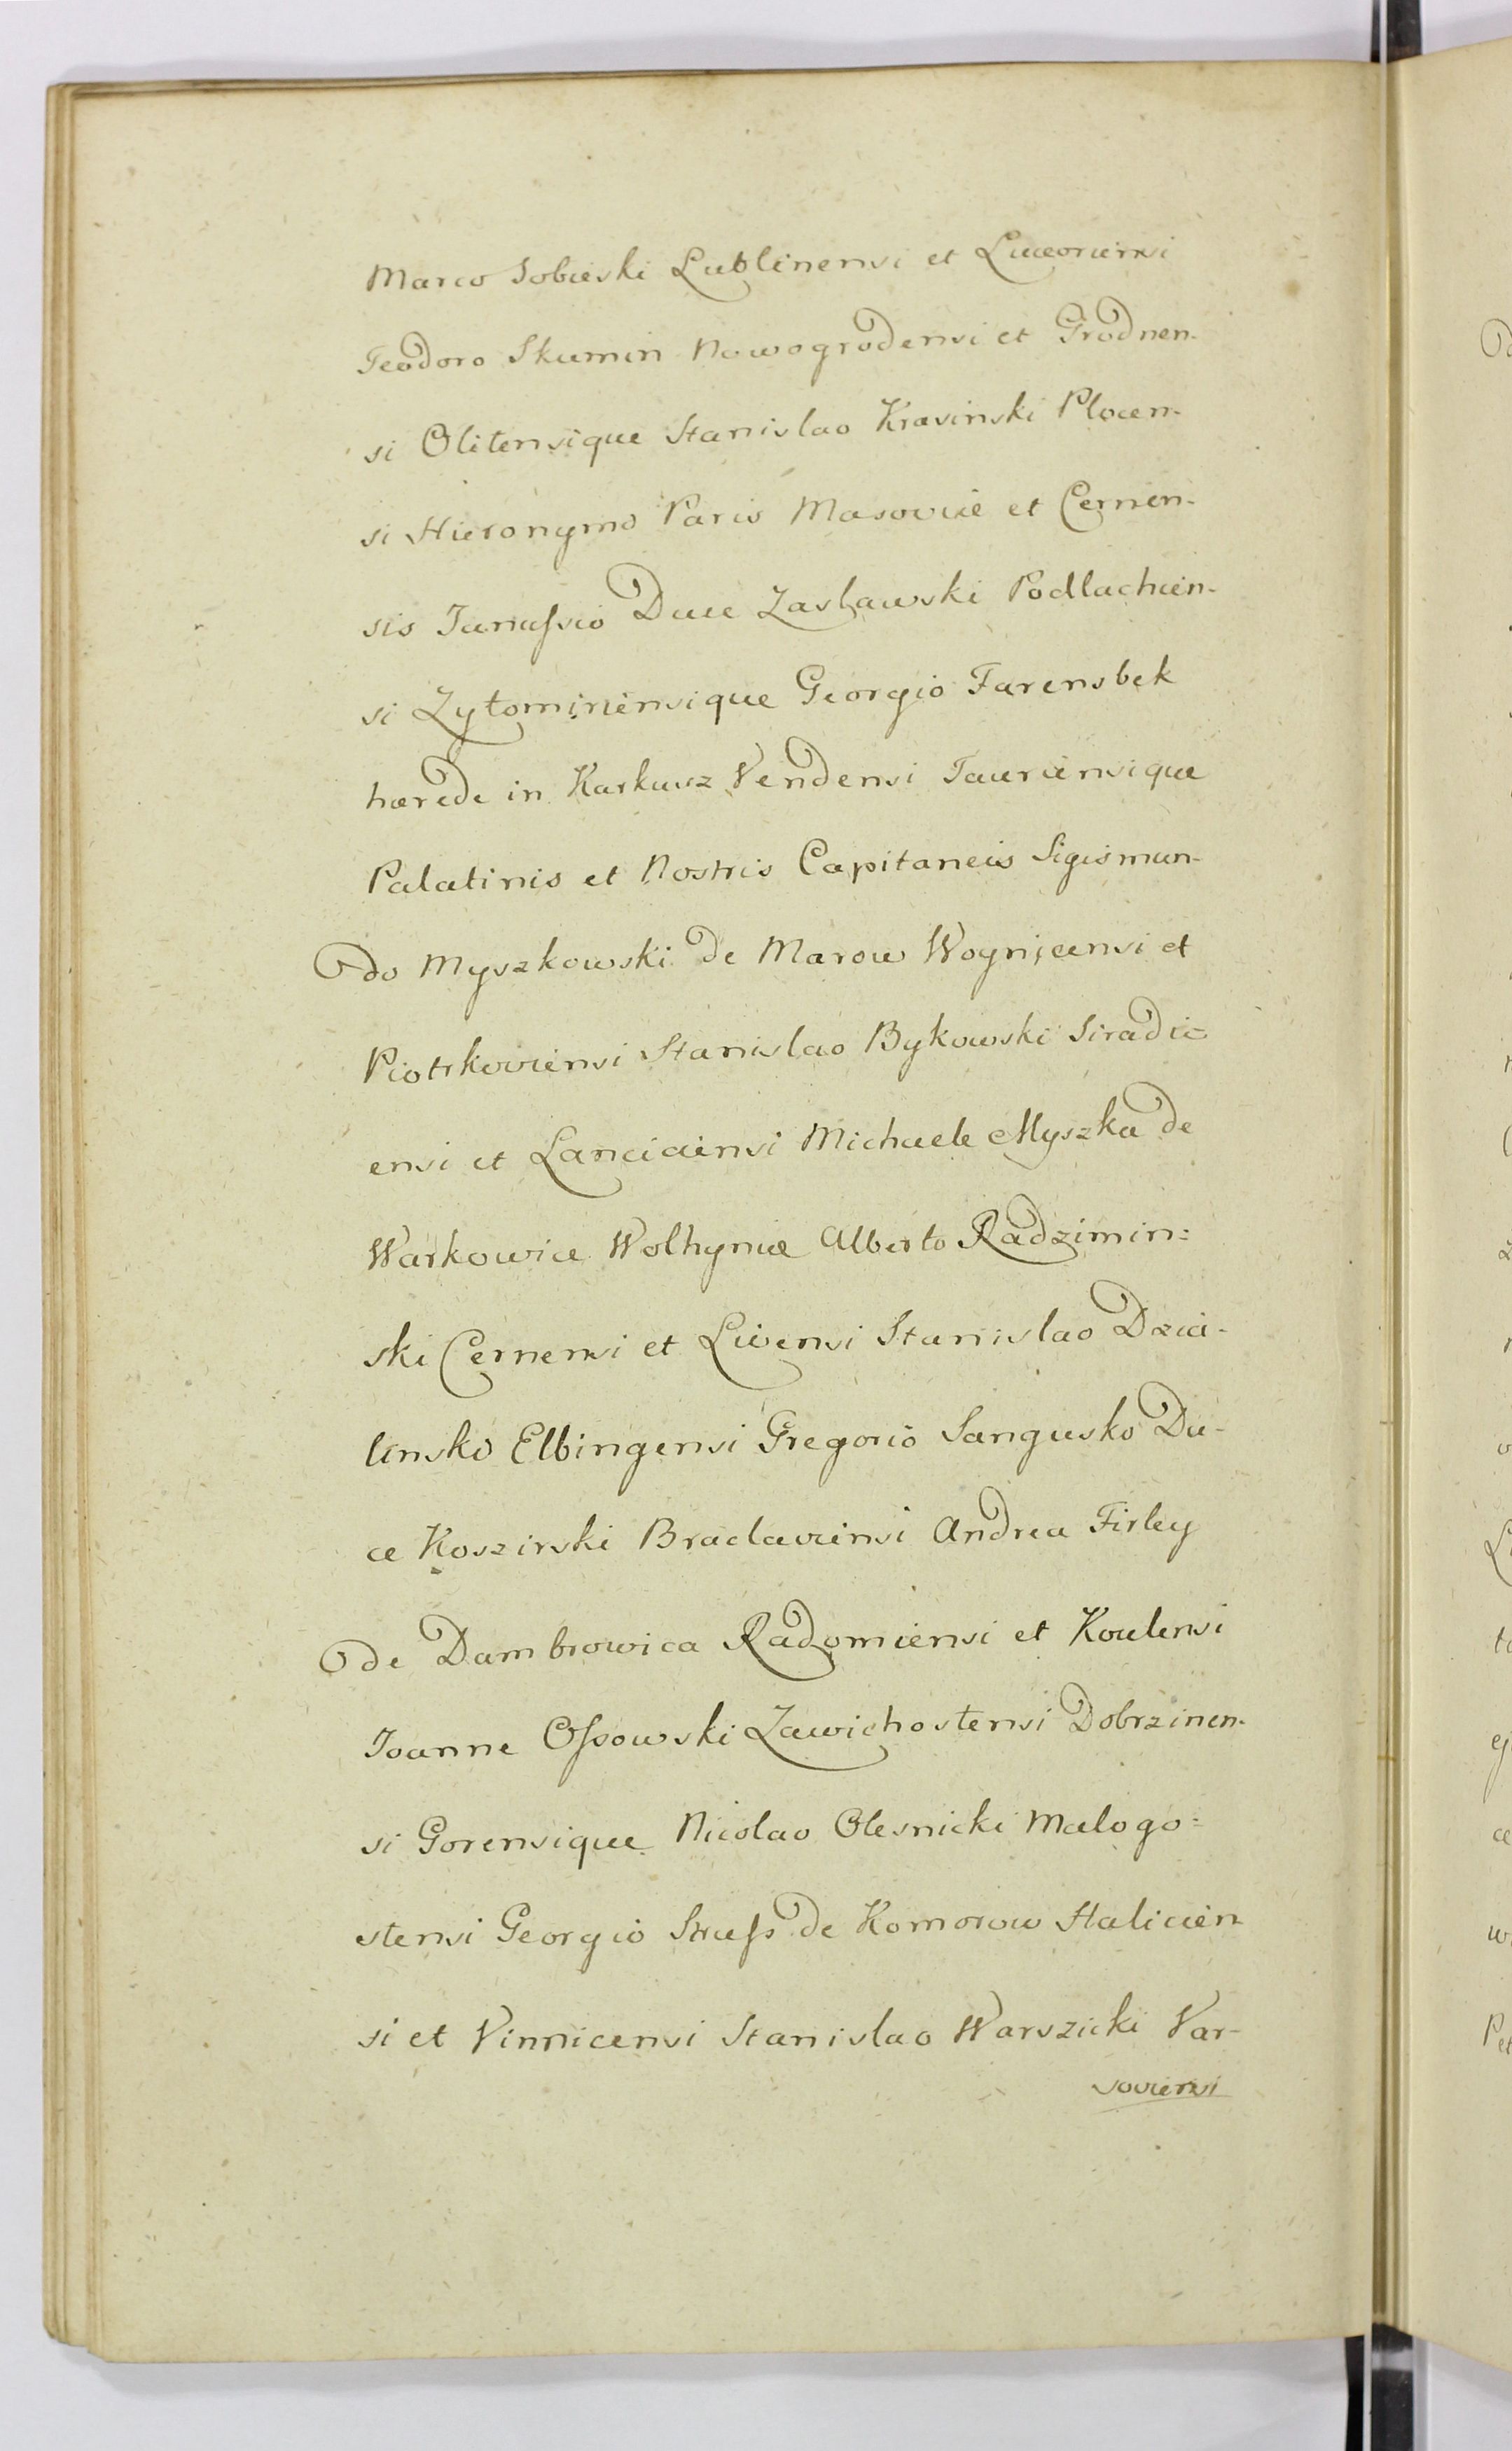 Marco Sobieski Lublinensi et Luceoriensi
Teodoro Skumin Nowogrodensi et Grodnen-
si Olitensique Stanislao Krasinski Plocen-
si Hieronymo Paris Masoviæ et Cernen-
sis Janussio Duce Zaslawski Podlachien-
si Zytominiensique Georgio Farensbek
hærede in Karkusz Vendensi Tauriensique
Palatinis et Nostris Capitaneis Sigismun-
do Myszkowski de Marow Woyniceensi et
Piotrkoviensi Stanislao Bykowski Siradic
ensi et Lanciciensi Michaele Myszka de
Warkowice Wolhyniæ Alberto Radzimin=
ski Cernensi et Livensi Stanislao Dzia-
linsko Elbingensi Gregorio Sangusko Du-
ce Koszirski Braclaviensi Andrea Firley
de Dambrowica Radomiensi et Koulensi
Joanne Ossowski Zawichostensi Dobrzinen-
si Gorensique Nicolao Olesnicki Malogo=
stensi Georgio Struss de Komorow Halicien-
si et Vinnicensi Stanislao Warszicki Var-
soviensi